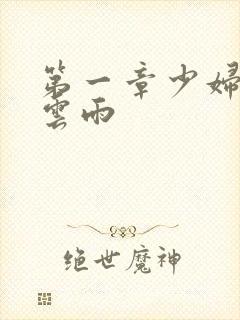 第一章少婦
雲雨
绝世魔神